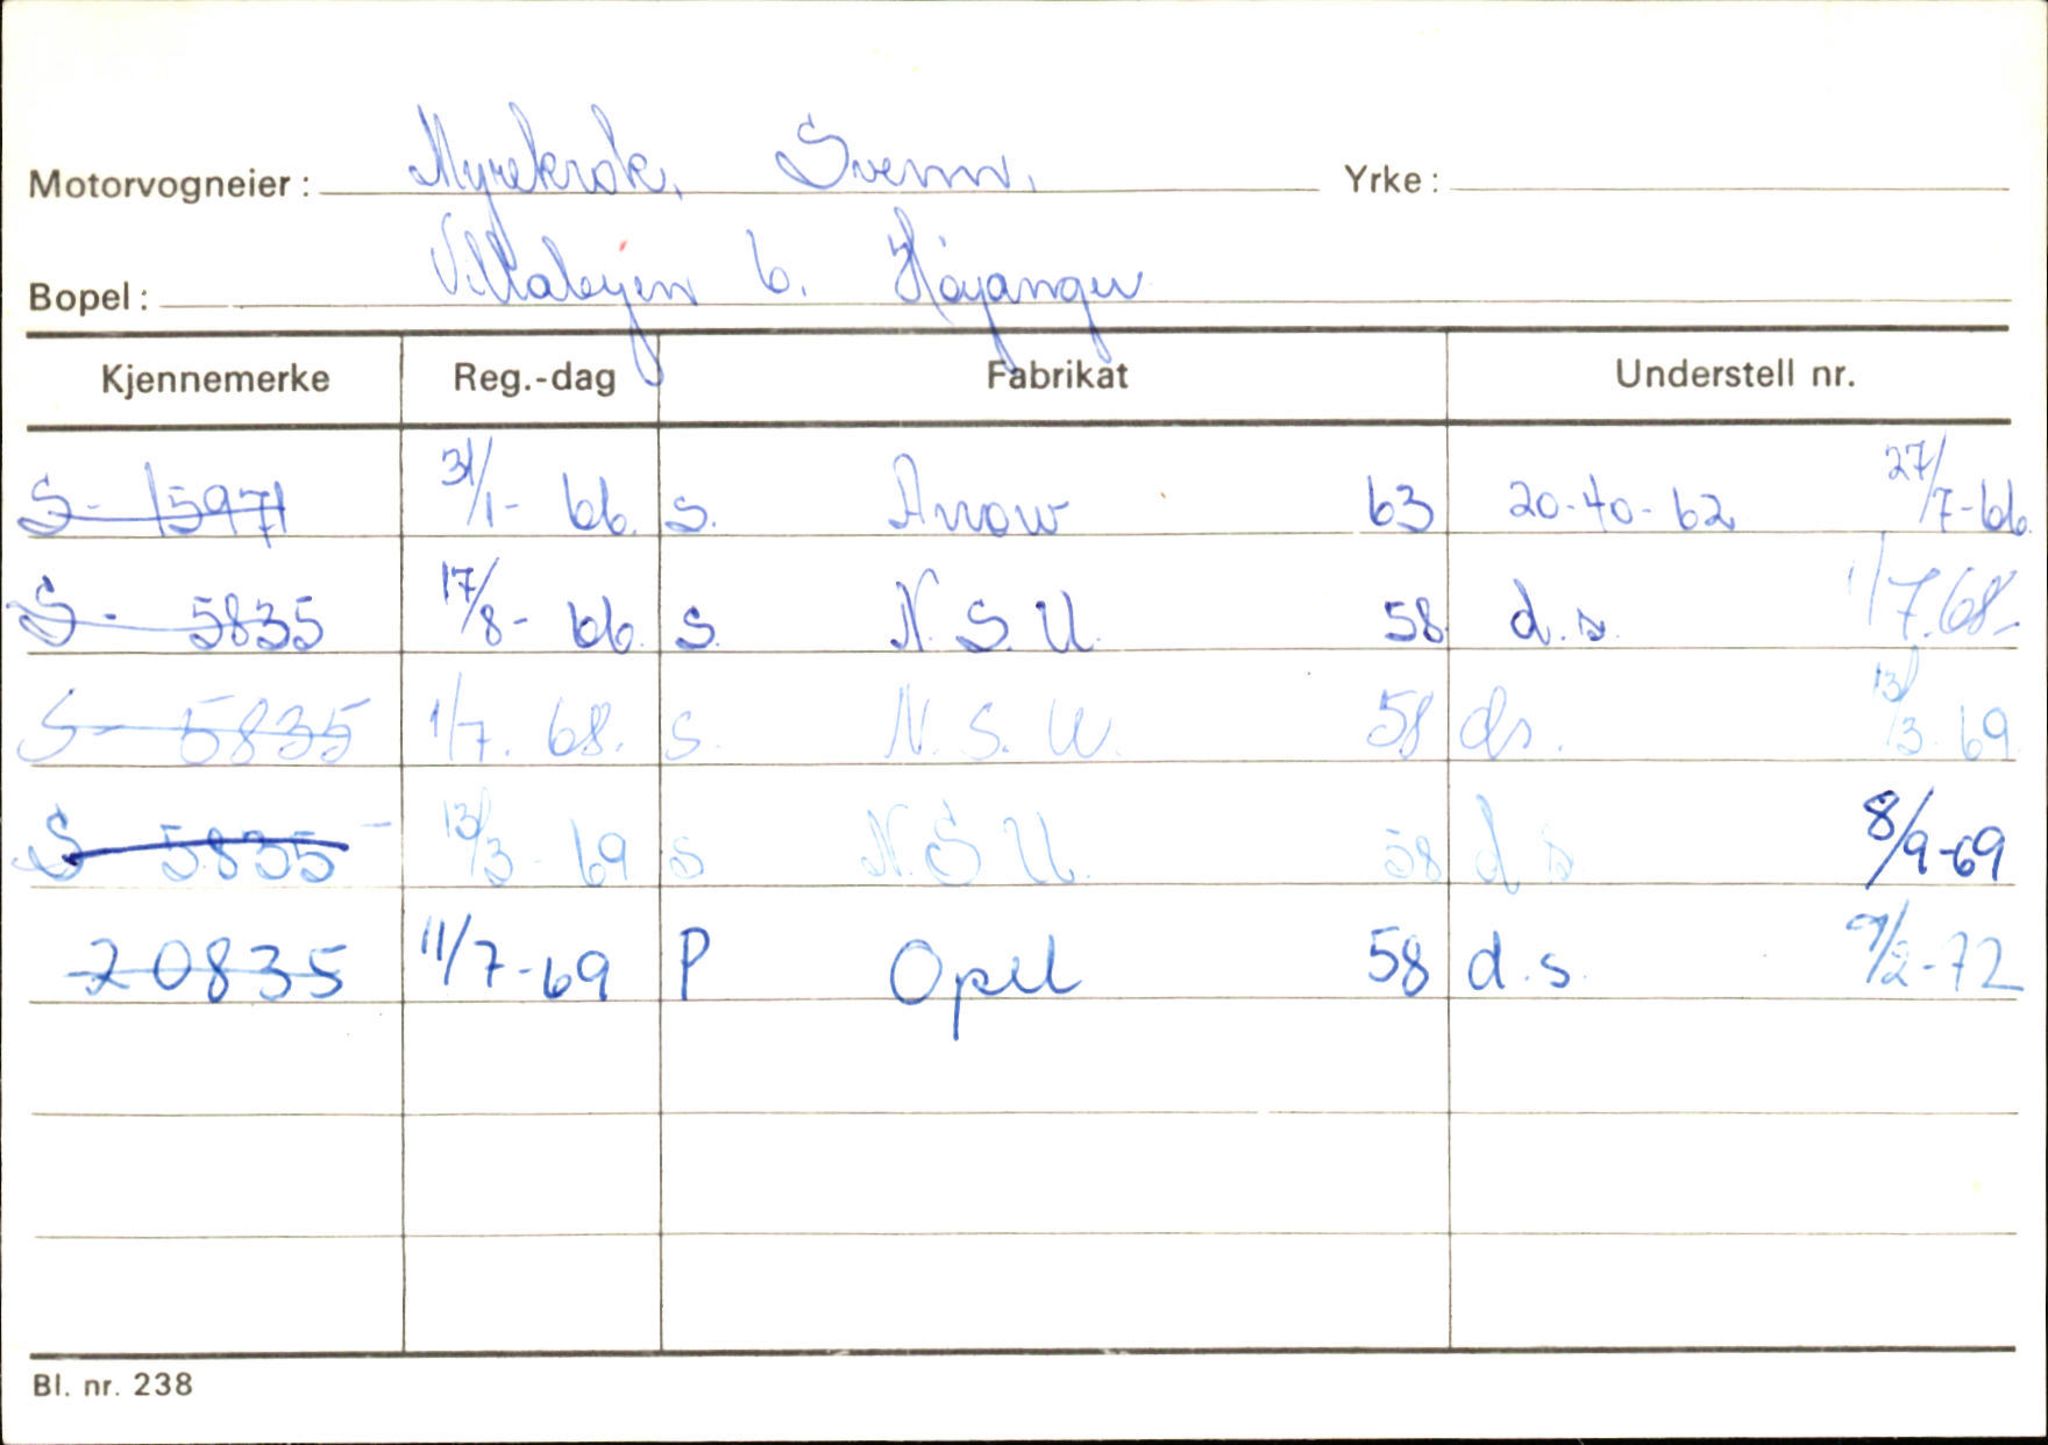 Motorvogneier: Myrekrok, Svenn. Yrke:
Bopel: Villabyen 6. Høyanger
Kjennemerke Reg.-dag Fabrikat Understell nr.
S- 15971 31/1- 66. s. Arrow 63 20-40-62 27/7-66.
S- 5835 17/8- 66. s. N.S.U. 58. d.s. 1/7.68-
S- 5835 1/7. 68. s. N.S.U. 58 ds. 13/3. 69
S 5835 - 13/3- 69 s N.S.U. 58 d s 8/9-69
20835 11/7-69 P Opel 58 d.s. 9/2-72
Bl. nr. 238